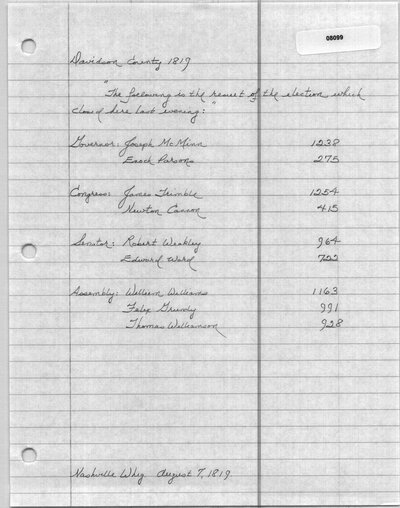 08099
Davidson County 1819
"The following is the result of the election which
closed here last evening:"
Governor: Joseph McMinn 1238
Enoch Parsons 275
Congress: James Trimble 1254
Newton Cannon 415
Senator: Robert Weakley 964
Edward Ward 722
Assembly: William Williams 1163
Felix Grundy 991
Thomas Williamson 928
Nashville Whig August 7, 1819